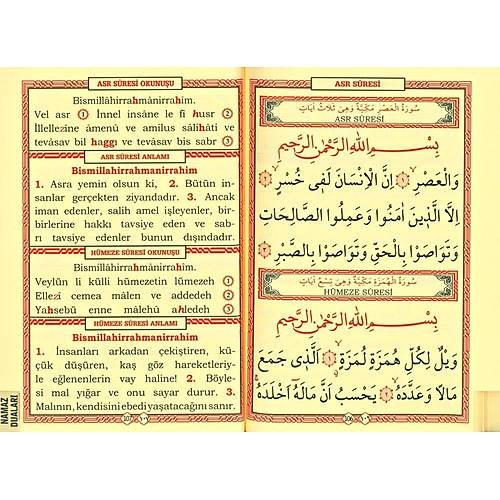 ASR SÛRESİ OKUNUŞU
Bismillâhirrahmânirrahim.
Vel asr ① İnnel insâne le fî husr ②
İllellezine âmenû ve amilus sâlihâti ve
tevâsav bil haggı ve tevâvsav bis sabr ③
ASR SÛRESİ ANLAMI
Bismillahirrahmanirrahim
1. Asra yemin olsun ki, 2. Bütün in-
sanlar gerçekten ziyandadır. 3. Ancak
iman edenler, salih amel işleyenler, bir-
birlerine hakkı tavsiye eden ve sab-
rı tavsiye edenler bunun dışındadır.
HÜMEZE SÛRESİ OKUNUŞU
Bismillâhirrahmânirrahim.
Veylün li külli hümezetin lümezeh ①
Ellezi cemea mâlen ve addedeh ②
Yahsebü enne mâlehû ahledeh ③
HÜMEZE SÛRESİ ANLAMI
Bismillahirrahmanirrahim
1. İnsanları arkadan çekiştiren, kü-
çük düşüren, kaş göz hareketleriy-
le eğlenenlerin vay haline! 2. Böyle-
si mal yığar ve onu sayar durur. 3.
Malının, kendisini ebedi yaşatacağını sanır.
107
NAMAZ
DUALARI
ASR SÛRESİ
سُورَةُ الْعَصْرِ مَكِّيَّةٌ وَهِيَ ثَلَاثُ اٰيَاتٍ
ASR SÛRESİ
بِسْمِ اللّٰهِ الرَّحْمٰنِ الرَّحِيمِ
وَالْعَصْرِ ۙ ١ اِنَّ الْاِنْسَانَ لَفٖى خُسْرٍ ۙ ٢
اِلَّا الَّذٖينَ اٰمَنُوا وَعَمِلُوا الصَّالِحَاتِ
وَتَوَاصَوْا بِالْحَقِّ وَتَوَاصَوْا بِالصَّبْرِ ٣
سُورَةُ الْهُمَزَةِ مَكِّيَّةٌ وَهِيَ تِسْعُ اٰيَاتٍ
HÜMEZE SÛRESİ
بِسْمِ اللّٰهِ الرَّحْمٰنِ الرَّحِيمِ
وَيْلٌ لِكُلِّ هُمَزَةٍ لُمَزَةٍ ۙ ١ اَلَّذٖى جَمَعَ
مَالًا وَعَدَّدَهُ ۙ ٢ يَحْسَبُ اَنَّ مَالَهُٓ اَخْلَدَهُ ۚ ٣
106